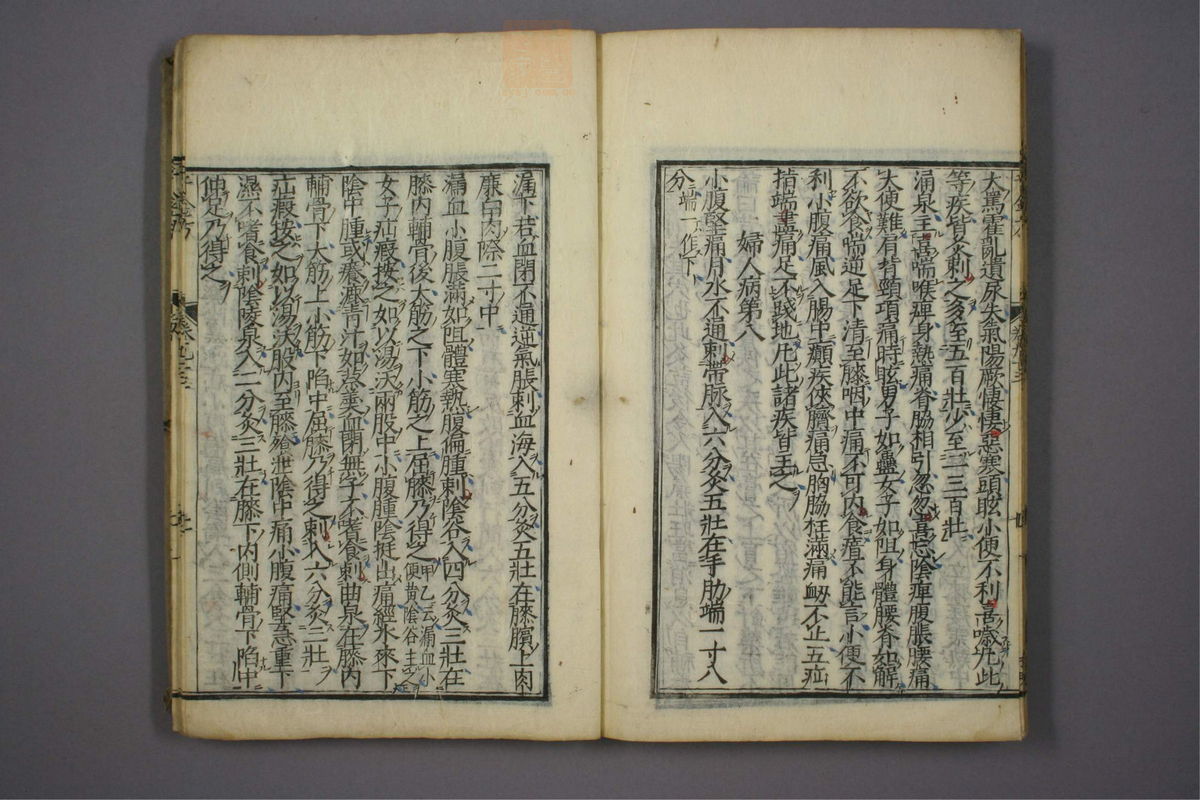 大罵霍亂遺尿失氣陽厥悽悽惡寒頭眩小便不利喜噦凡此
等疾皆灸刺之多至五百壯少至二三百壯
涌泉主喜喘喉痺身熱痛脊脇相引忽忽喜忘陰痺腹脹腰痛
大便難肩背頸項痛時眩男子如蠱女子如阻身體腰脊如解
不欲食喘逆足下清至膝咽中痛不可內食瘖不能言小便不
利小腹痛風入腸中癲疾俠臍痛急胸脇柱滿痛衂不止五疝
指端盡痛足不踐地凡此諸疾皆主之
婦人病第八
小腹堅痛月水不通刺帶脉入六分灸五壯在季肋端一寸八
分端一作下
漏下若血閉不通逆氣脹刺血海入五分灸五壯在膝臏上內
廉白肉際二寸中
漏血小腹脹滿如阻體寒熱腹偏腫刺陰谷入四分灸三壯在
膝內輔骨後大筋之下小筋之上屈膝乃得之甲乙云漏血小便黃陰谷主之
女子疝瘕按之如以湯沃兩股中小腹腫陰挺出痛經水來下
陰中腫或癢漉青汁如葵羹血閉無子不嗜食刺曲泉在膝內
輔骨下大筋上小筋下陷中屈膝乃得之刺入六分灸三壯
疝瘕按之如以湯沃股內至膝飧泄陰中痛小腹痛堅急重下
濕不嗜食刺陰陵泉入二分灸三壯在膝下內側輔骨下陷中
伸足乃得之